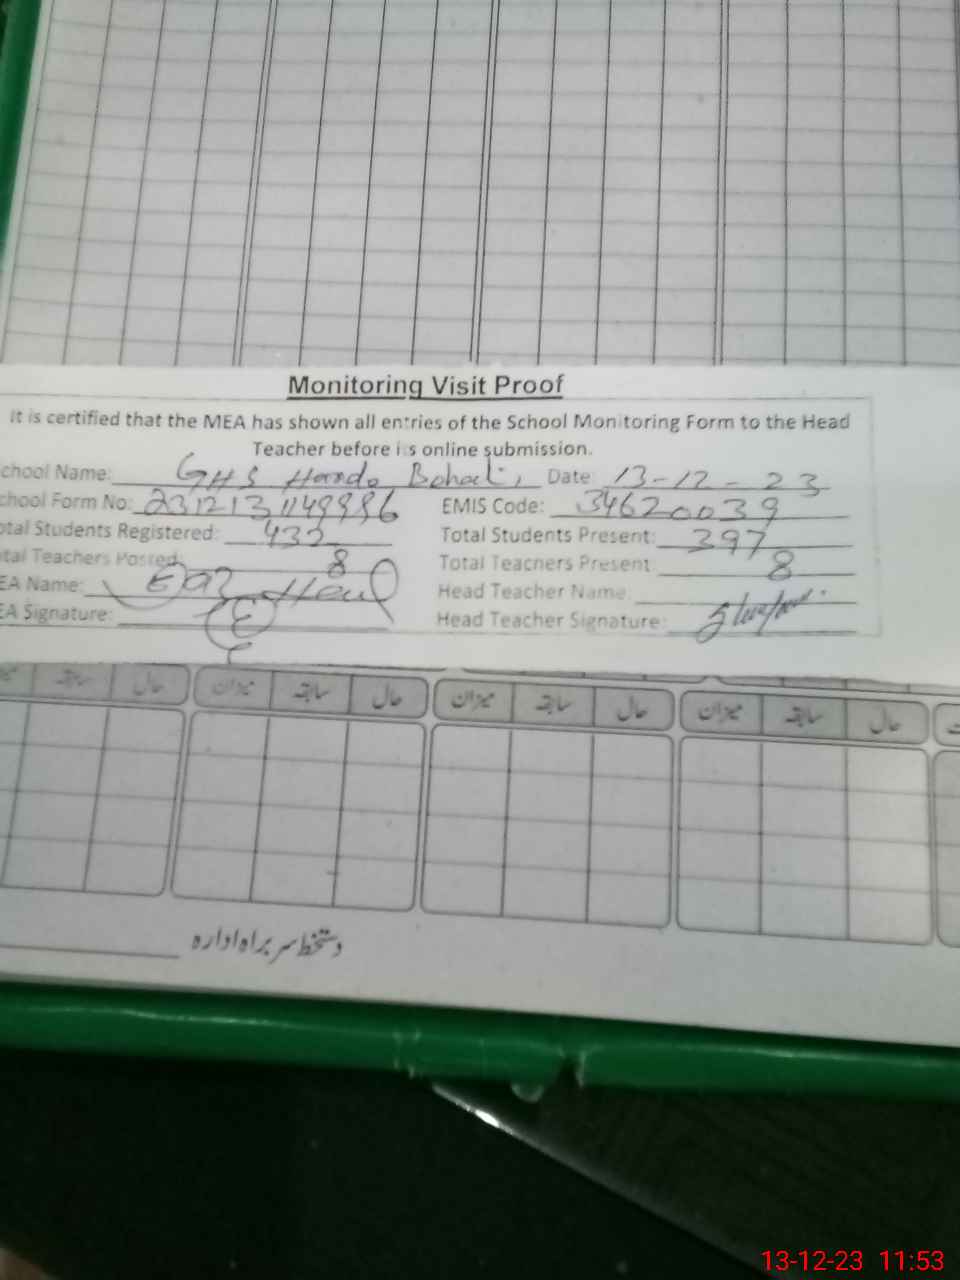 Monitoring Visit Proof
It is certified that the MEA has shown all entries of the School Monitoring Form to the Head
Teacher before its online submission.
chool Name: GHS Date: 13-12-23
chool Form No: EMIS Code: 34620039
otal Students Registered: 432 Total Students Present: 397
tal Teachers Posted: 8 Total Teachers Present: 8
EA Name: Head Teacher Name:
EA Signature: Head Teacher Signature:
حال سابقہ میزان حال سابقہ میزان حال سابقہ
دستخط سربراہ ادارہ
13-12-23 11:53